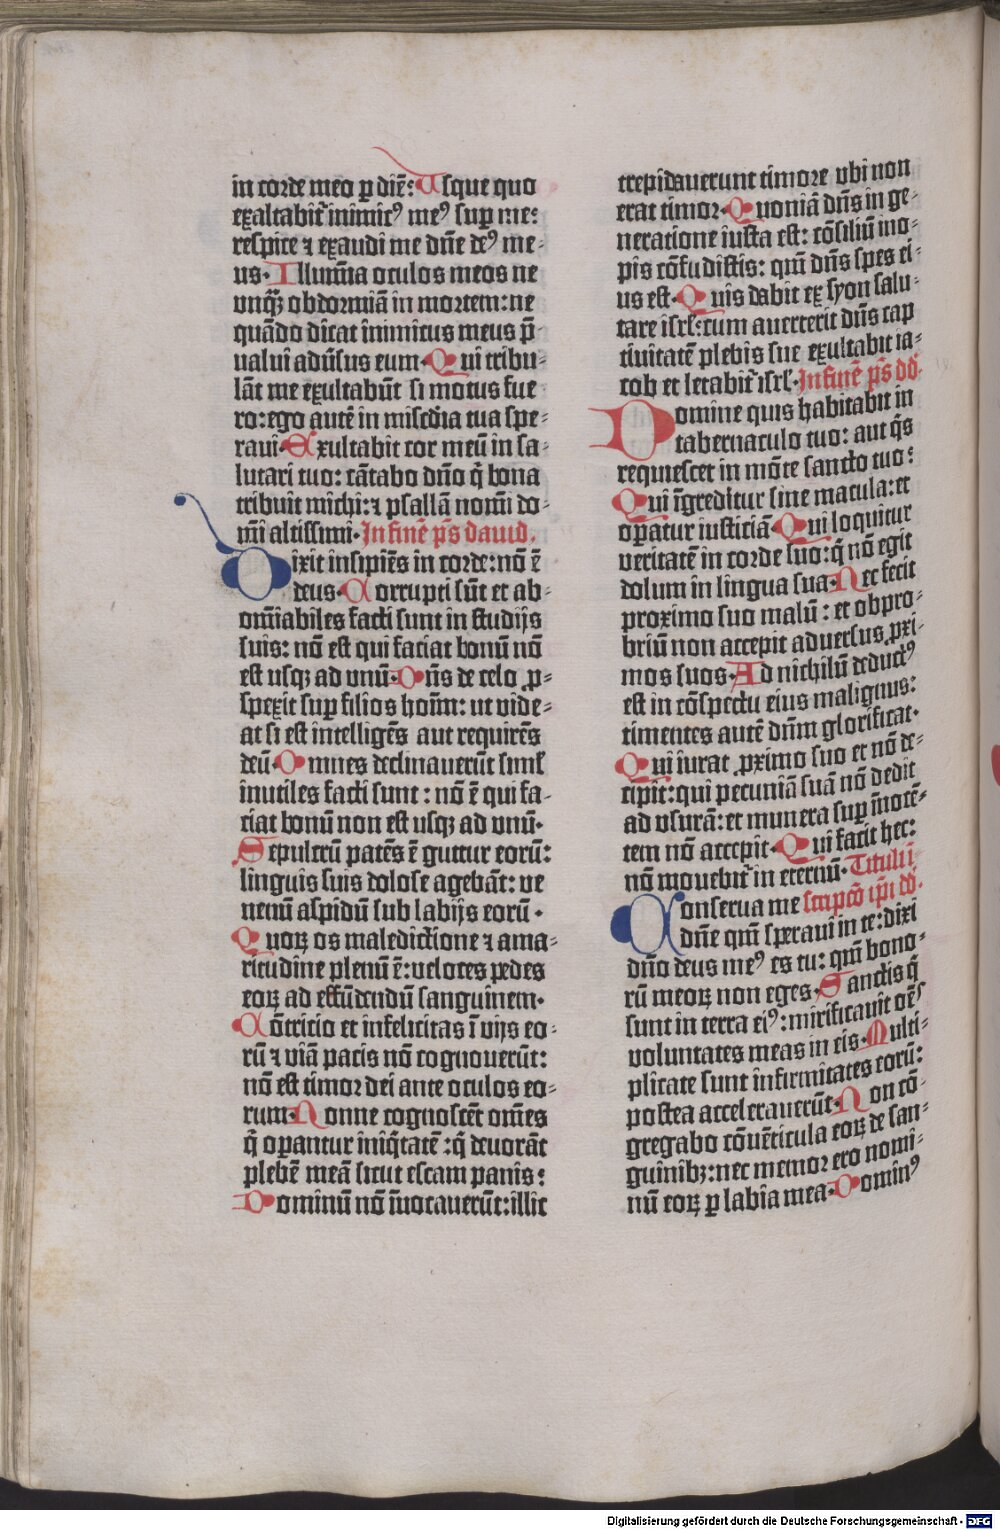 in corde meo ꝑ diē: Vsque quo
exaltabit᷑ inimicꝰ meꝰ suꝑ me:
respice ⁊ exaudi me dn̄e deꝰ me⸗
us· Illumīa oculos meos ne
vnqꝫ obdormiā in mortem: ne
quādo dicat inimicus meus p̄⸗
ualui adūsus eum· Qui tribu⸗
lāt me exultabūt si motus fue
ro: ego autē in misc̄dia tua spe⸗
raui· Exultabit cor meū in sa⸗
lutari tuo: cātabo dn̄o q̄ bona
tribuit michi: ⁊ psallā nomī do⸗
mī altissimi· In finē p̄s dauid.
Dixit insipiēs in corde: nō ē
deus· Corrupti sūt et ab⸗
omīabiles facti sunt in studijs
suis: nō est qui faciat bonū nō
est usqꝫ ad vnū· Dn̄s de celo ꝓ⸗
spexit suꝑ filios hoīm: ut vide⸗
at si est intelligēs aut requirēs
deū· Omnes declinauerūt simł
inutiles facti sunt: nō ē qui fa⸗
ciat bonū non est usqꝫ ad vnū·
Sepulcrū patēs ē guttur eorū:
linguis suis dolose agebāt: ve
nenū aspidū sub labijs eorū·
Quoꝝ os maledictione ⁊ ama⸗
ritudine plenū ē: veloces pedes
eoꝝ ad effūdendū sanguinem·
Cōtricio et infelicitas ī vijs eo⸗
rū ⁊ viā pacis nō cognouerūt:
nō est timor dei ante oculos eo⸗
rum· Nonne cognoscēt om̄es
q̄ oꝑantur iniq̄tatē: q̄ deuorāt
plebē meā sicut escam panis:
Dominū nō īuocauerūt: illic
trepidauerunt timore vbi non
erat timor· Quoniā dn̄s in ge⸗
neratione iusta est: cōsiliū ino⸗
pis cōfudistis: qm̄ dn̄s spes ei⸗
us est· Quis dabit ex syon salu⸗
tare isrł: cum auerterit dn̄s cap
tiuitatē plebis sue exultabit ia⸗
cob et letabit᷑ isrł· In finē p̄s dd̄·
Domine quis habitabit in
tabernaculo tuo: aut q̄s
requiescet in mōte sancto tuo:
Qui īgreditur sine macula: et
oꝑatur iusticiā· Qui loquitur
veritatē in corde suo: q̄ nō egit
dolum in lingua sua· Nec fecit
proximo suo malū: et obpro⸗
briū non accepit aduersus ꝓxi⸗
mos suos· Ad nichilū deductꝰ
est in cōspectu eius malignus:
timentes autē dn̄m glorificat·
Qui iurat ꝓximo suo et nō de⸗
cipit: qui pecuniā suā nō dedit
ad vsurā: et munera suꝑ īnocē⸗
tem nō accepit· Qui facit hec:
nō mouebit᷑ in eternū· Tituli ī
Conserua me scripcō ip̄i dd̄·
dn̄e qm̄ speraui in te: dixi
dn̄o deus meꝰ es tu: qm̄ bono⸗
rū meoꝝ non eges· Sanctis q̄
sunt in terra eiꝰ: mirificauit oēs
voluntates meas in eis· Multi⸗
plicate sunt infirmitates eorū:
postea accelerauerūt· Non cō⸗
gregabo cōuēticula eoꝝ de san⸗
guinibꝫ: nec memor ero nomi⸗
nū eoꝝ ꝑ labia mea· Dominꝰ
Digitalisierung gefördert durch die Deutsche Forschungsgemeinschaft - DFG